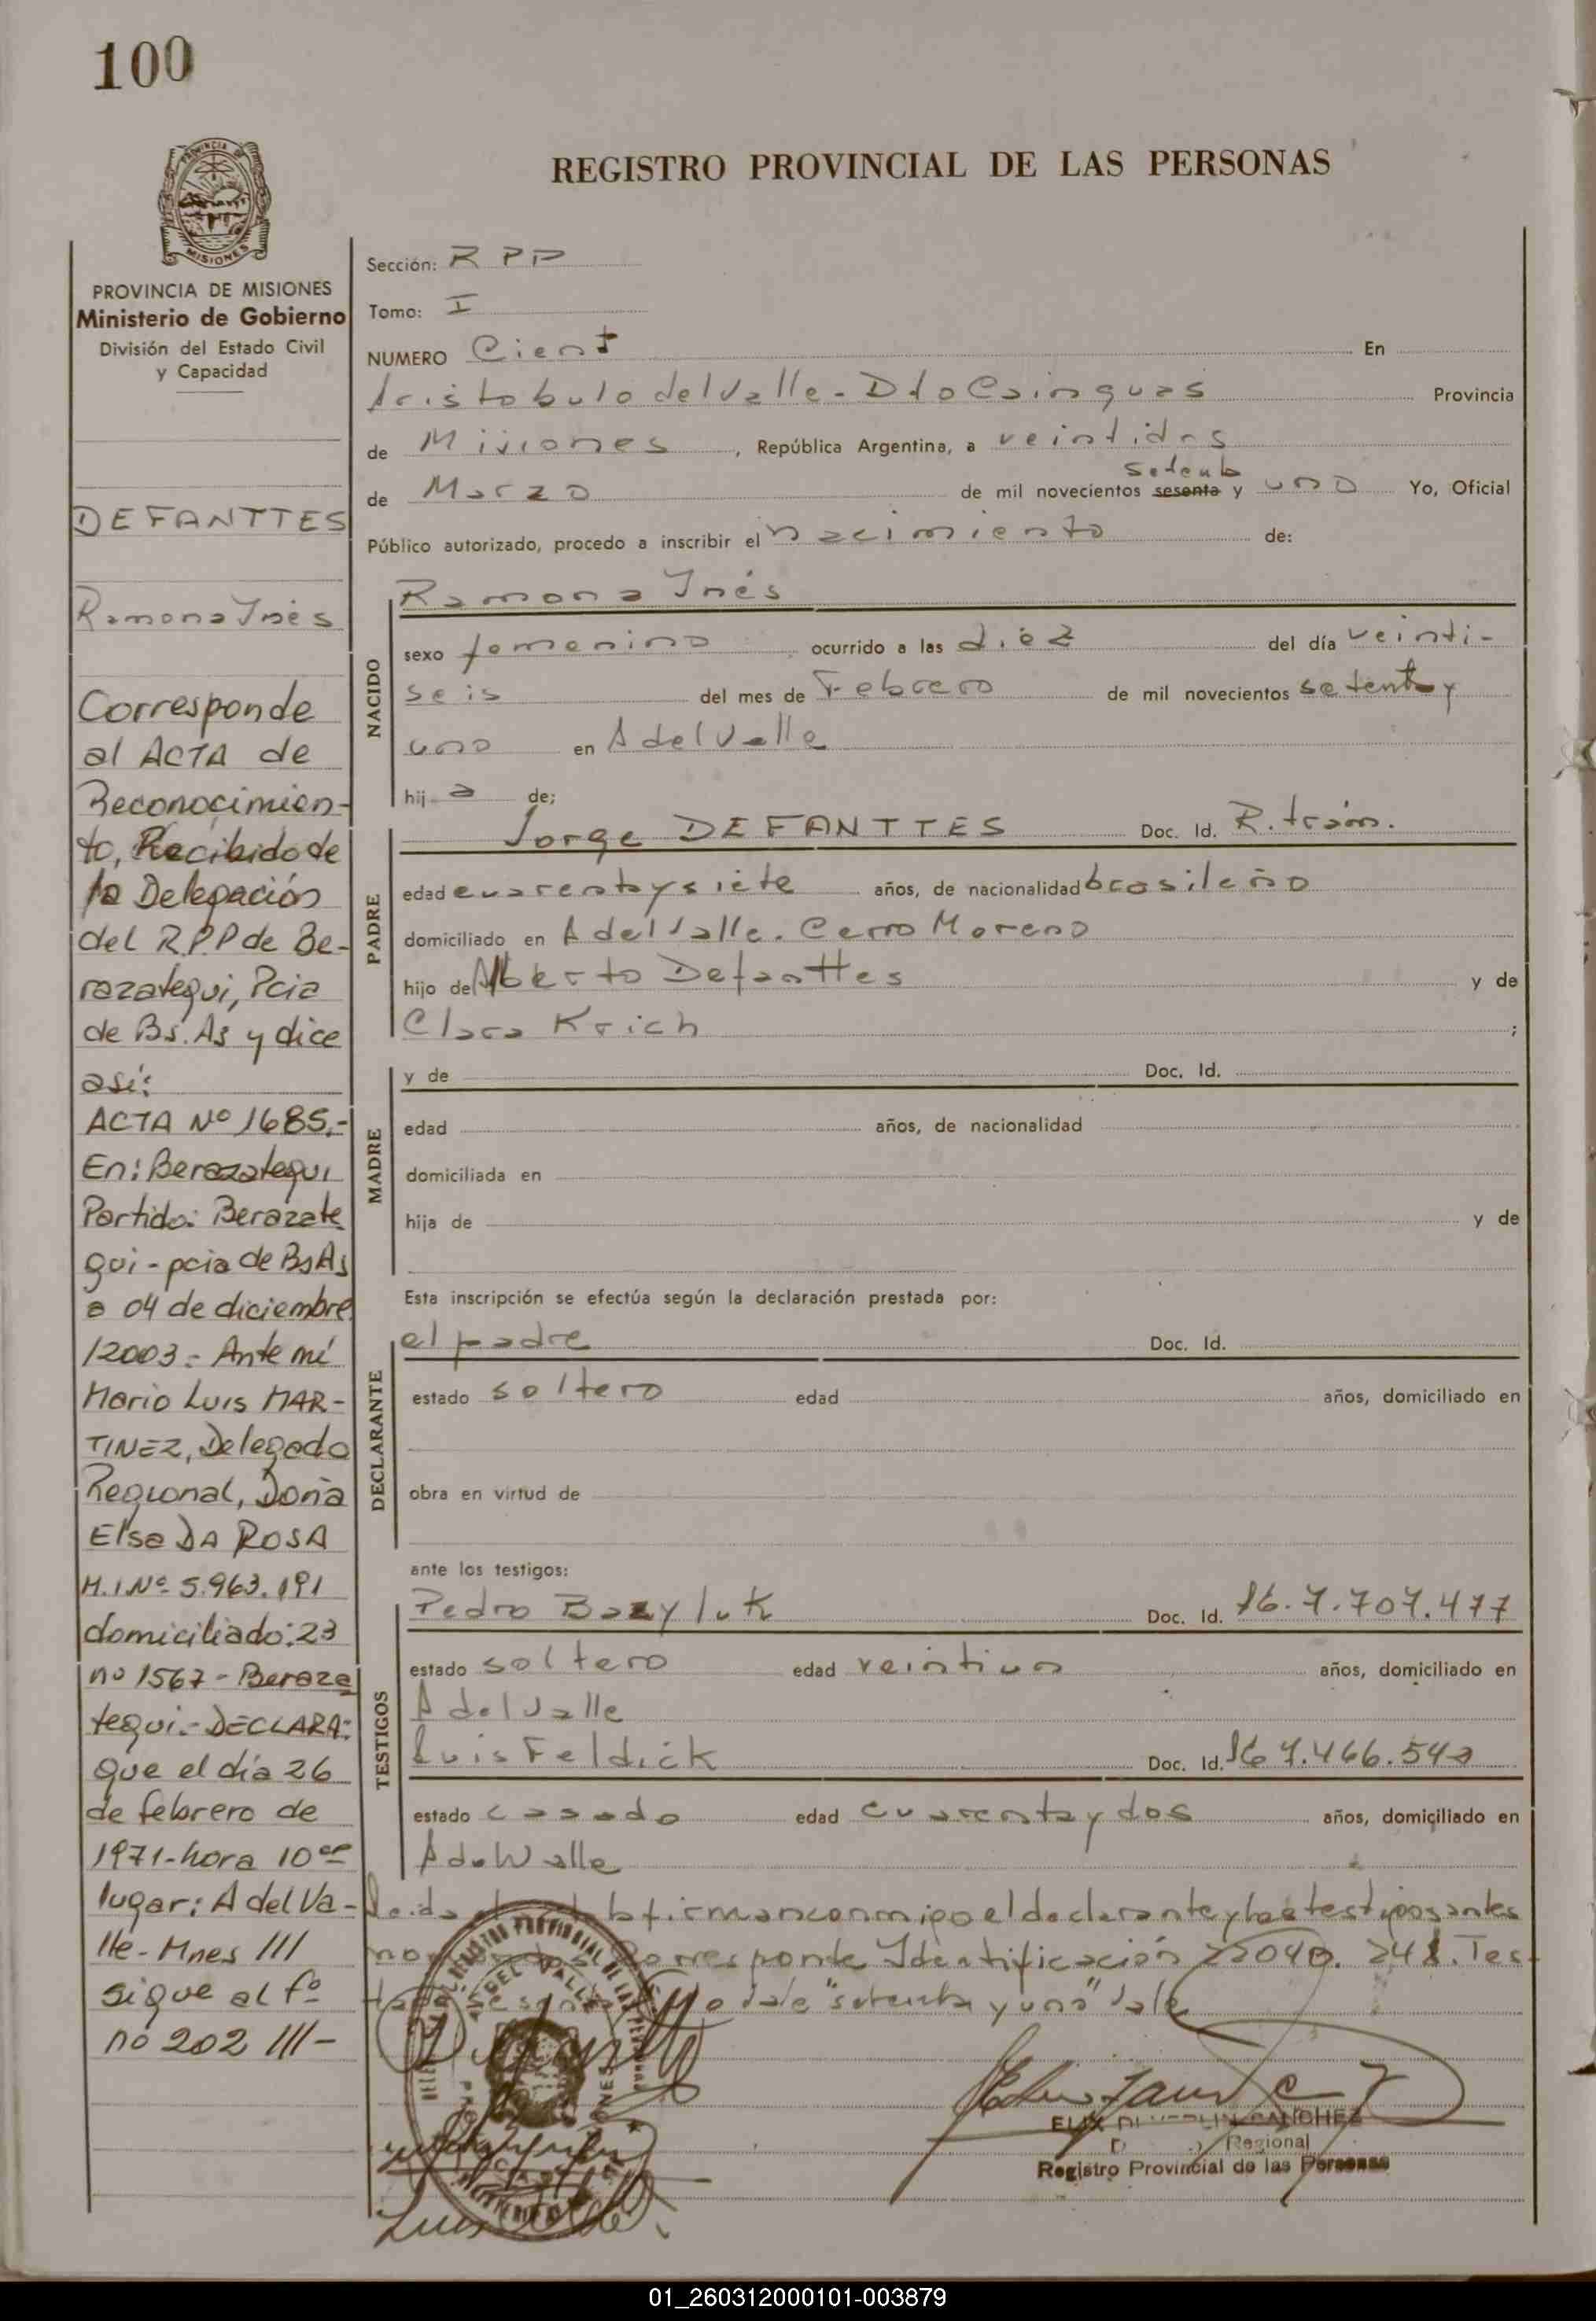 100
REGISTRO PROVINCIAL DE LAS PERSONAS
PROVINCIA DE MISIONES
PROVINCIA DE MISIONES
Ministerio de Gobierno
División del Estado Civil
y Capacidad
DEFANTTES
Ramona Inés
Corresponde
al ACTA de
Reconocimien-
to, Recibido de
la Delegación
del R.P.P de Be-
razategui, Pcia
de Bs. As y dice
así:
ACTA Nº 1685.-
En: Berazategui
Partido: Berazate
gui - pcia de BsAs
a 04 de diciembre
/2003.- Ante mí
Mario Luis MAR-
TINEZ, Delegado
Regional, Doña
Elsa DA ROSA
M.I Nº 5.963.191
domiciliado: 23
nº 1567 - Beraza
tegui.- DECLARA:
que el día 26
de febrero de
1971 - hora 10
lugar: A del Va-
lle - Mnes ///
sigue al fº
nº 202 ///-
Sección: R P P
Tomo: I
NUMERO Cient En
Aristobulo del Valle - Dto Cainguas Provincia
de Misiones, República Argentina, a veintidos
setenta
de Marzo de mil novecientos sesenta y uno Yo, Oficial
Público autorizado, procedo a inscribir el nacimiento de:
NACIDO
Ramona Inés
sexo femenino ocurrido a las diez del día veinti-
seis del mes de Febrero de mil novecientos setenta y
uno en A del Valle
hij a de;
PADRE
Jorge DEFANTTES Doc. Id. R. trám.
edad cuarenta y siete años, de nacionalidad brasileño
domiciliado en A del Valle. Cerro Moreno
hijo de Alberto Defanttes y de
Clara Krich ;
MADRE
y de Doc. Id.
edad años, de nacionalidad
domiciliada en
hija de y de
Esta inscripción se efectúa según la declaración prestada por:
DECLARANTE
el padre Doc. Id.
estado soltero edad años, domiciliado en
obra en virtud de
ante los testigos:
TESTIGOS
Pedro Bazyluk Doc. Id. 7.707.477
estado soltero edad veintiun años, domiciliado en
A del Valle
Luis Feldick Doc. Id.
estado casado edad cuarenta y dos años, domiciliado en
A del Valle
Leida el firman conmigo el declarante y los testigos antes
Corresponde Identificación Tes-
vale "setenta y uno" vale
Regional
Registro Provincial de las Personas
01_260312000101-003879